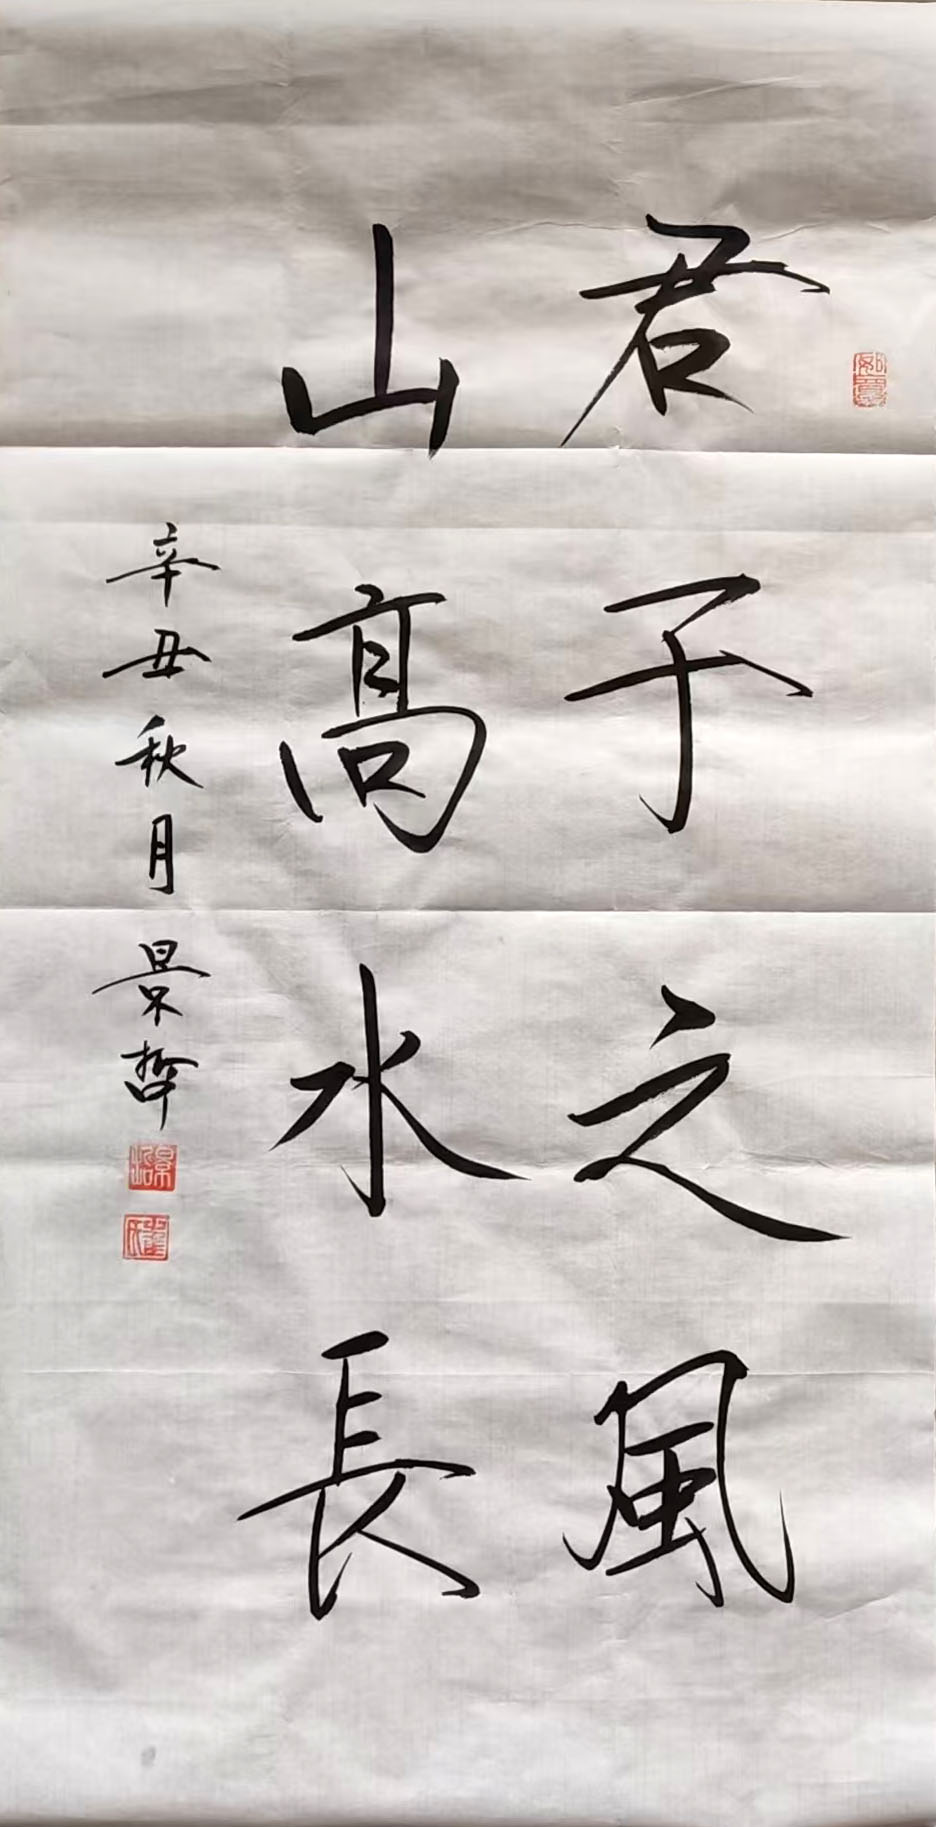 君子之風
山高水長
辛丑秋月景哲
如意